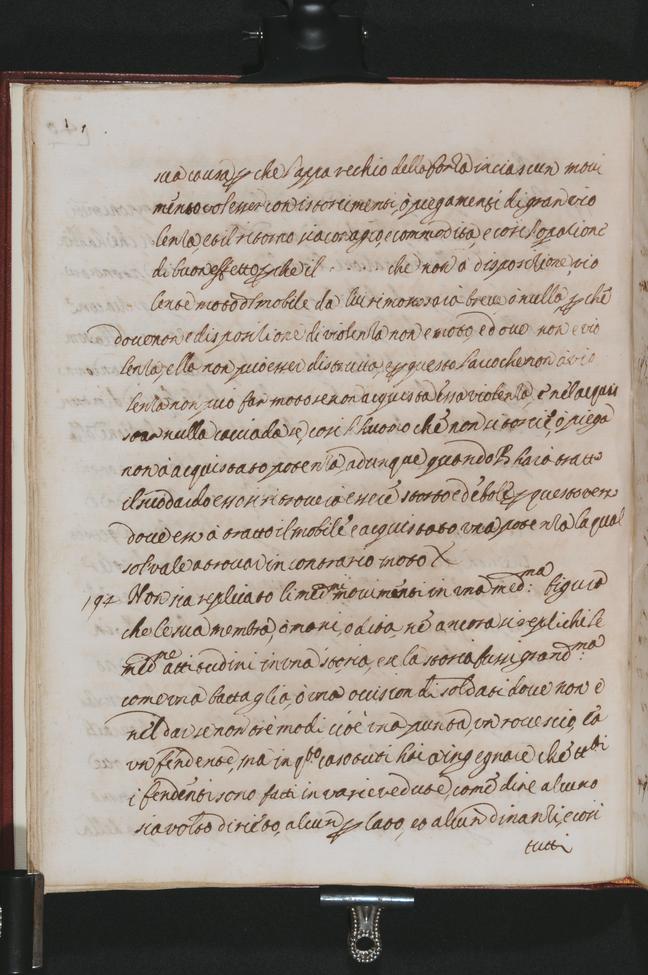 sua causa, p che l'apparecchio della forza in ciascun movi
mento vol esser con istorcimenti, o piegamenti di gran vio
lenza et il ritorno sia con agio e commodità, e così l'opatione
à di buon effetto p che il che non à dispositione vio
lente moto del mobile da lui rimosso sia breve o nulla p chè
dove non e dispositione di violenza non e moto e dove non e vio
lenza ella non puo esser distrutta, e p questo l'arco che non à vio
lenza non può far moto se non acquista essa violenza, e nel acquis
tar nulla caccia da se, così l'huomo chè non si torcie, o piega
non à acquistato potenza, adunque quando P haia tratto
il suo dardo esso si ritroverà esser storto e debole p questo verso
dove esso à tratto il mobile e acquistato una potenza la qual
sol vale a tornar in contrario moto X
194 Non sia replicato li medmi movimenti in una medma figura
che le sua membra, o mani, o dita nè ancora si replichi le
medme attitudini in una storia, e se la storia fussi grandma
come una battaglia, o una occision di soldati dove non è
nel dar se non tre modi cioè una punta, un rovescio, ea
un fendente, ma in qto caso tu ti hai a ingegnare chè tti
i fendenti sono fatti in varie vedute, come dire alcuno
sia volto dirieto, alcun p lato, et alcun dinanzi, e così
tutti